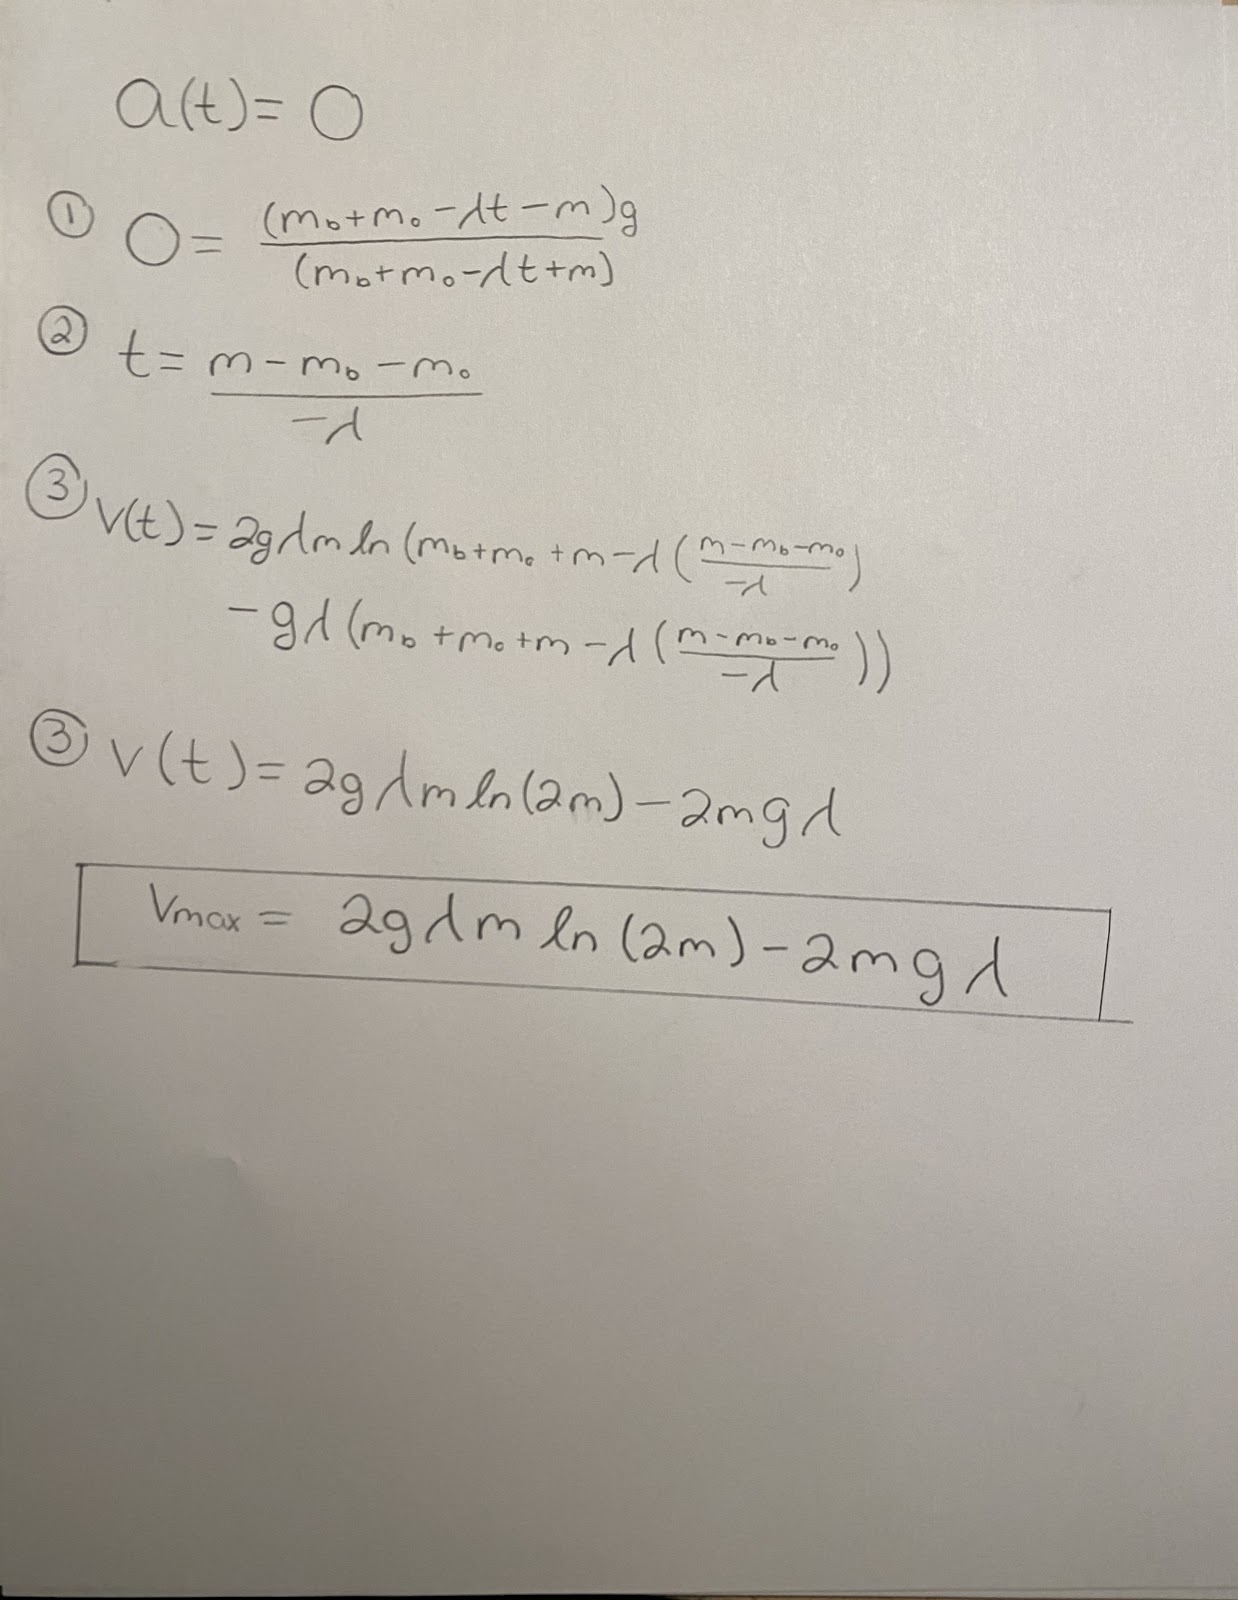 a(t)= 0
① 0 = (m_b+m_0-λt-m)g / (m_b+m_0-λt+m)
② t = m-m_b-m_0 / -λ
③ v(t) = 2gλm ln (m_b+m_0+m-λ(m-m_b-m_0 / -λ)
-gλ(m_b+m_0+m-λ(m-m_b-m_0 / -λ))
③ v(t) = 2gλm ln(2m)-2mgλ
Vmax = 2gλm ln(2m)-2mgλ